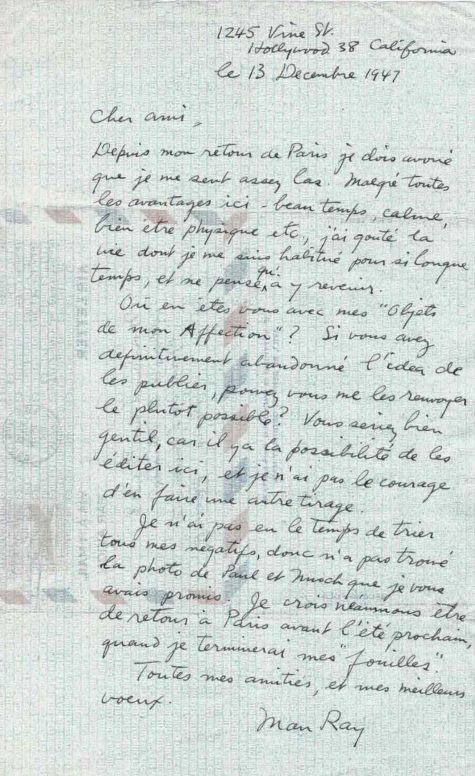 1245 Vine St.
Hollywood 38 California
le 13 Decembre 1947
Cher ami,
Depuis mon retour de Paris je dois avoué
que je me sent assez las. Malgré toutes
les avantages ici - beau temps, calme,
bien être physique etc, j'ai gouté la
vie dont je me suis habitué pour si longue
temps, et ne pense qu'à y revenir.
Où en êtes vous avec mes "Objets
de mon Affection"? Si vous avez
definitivement abandonné l'idea de
les publier, pouvez vous me les renvoyer
le plutôt possible? Vous seriez bien
gentil, car il y a la possibilité de les
éditer ici, et je n'ai pas le courage
d'en faire une autre tirage.
Je n'ai pas eu le temps de trier
tous mes negatifs, donc n'a pas trouvé
la photo de Paul et Nusch que je vous
avais promis. Je crois néanmoins être
de retour à Paris avant l'été prochain,
quand je terminerai mes "fouilles".
Toutes mes amitiés, et mes meilleurs
voeux.
Man Ray